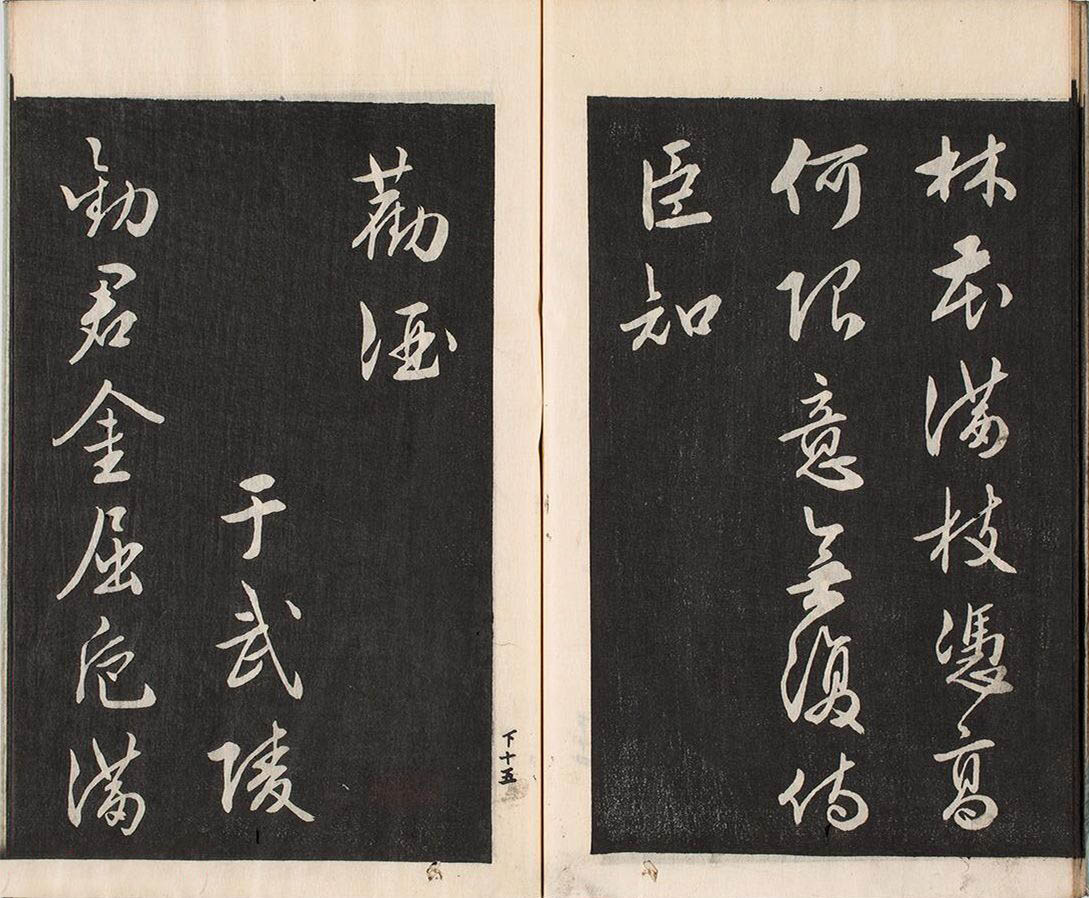 林花滿枝憑高
何限意無復侍
臣知
下十五
勸酒
于武陵
勸君金屈卮滿